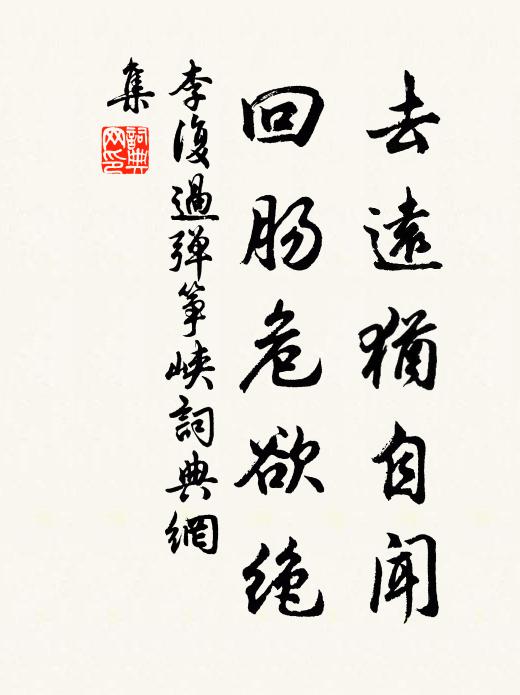 去遠猶自聞
回肠危欲绝
李復過弹筝峽詞典網
集
詞典網印